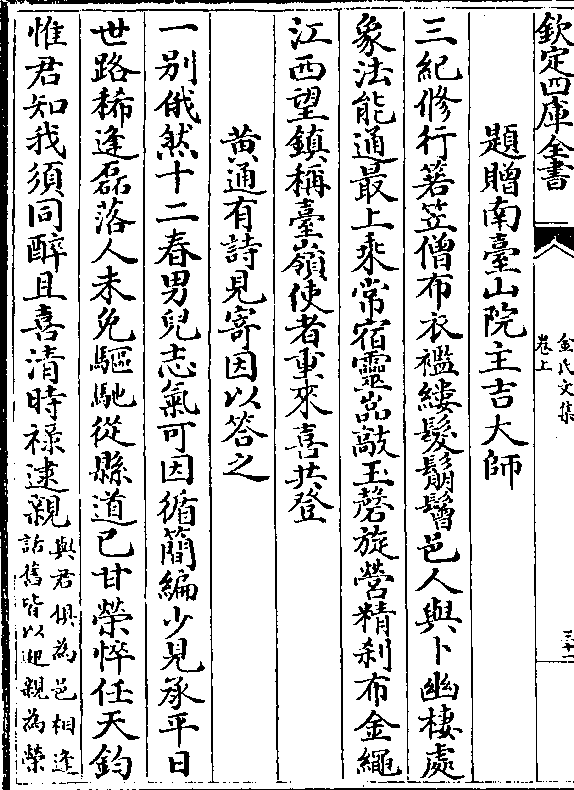 欽定四庫全書
金氏文集
卷上
三十一
題贈南臺山院主吉大師
三紀修行箬笠僧布衣襤縷髮鬅鬙邑人與卜幽棲處
象法能通最上乘常宿靈嵓敲玉磬旋營精刹布金繩
江西望鎮稱臺嶺使者重來喜共登
黄通有詩見寄因以答之
一别俄然十二春男兒志氣可因循簡編少見承平日
世路稀逢磊落人未免驅馳從縣道已甘榮悴任天鈞
惟君知我須同醉且喜清時禄逮親與君俱為邑相逢
話舊皆以迎親為榮